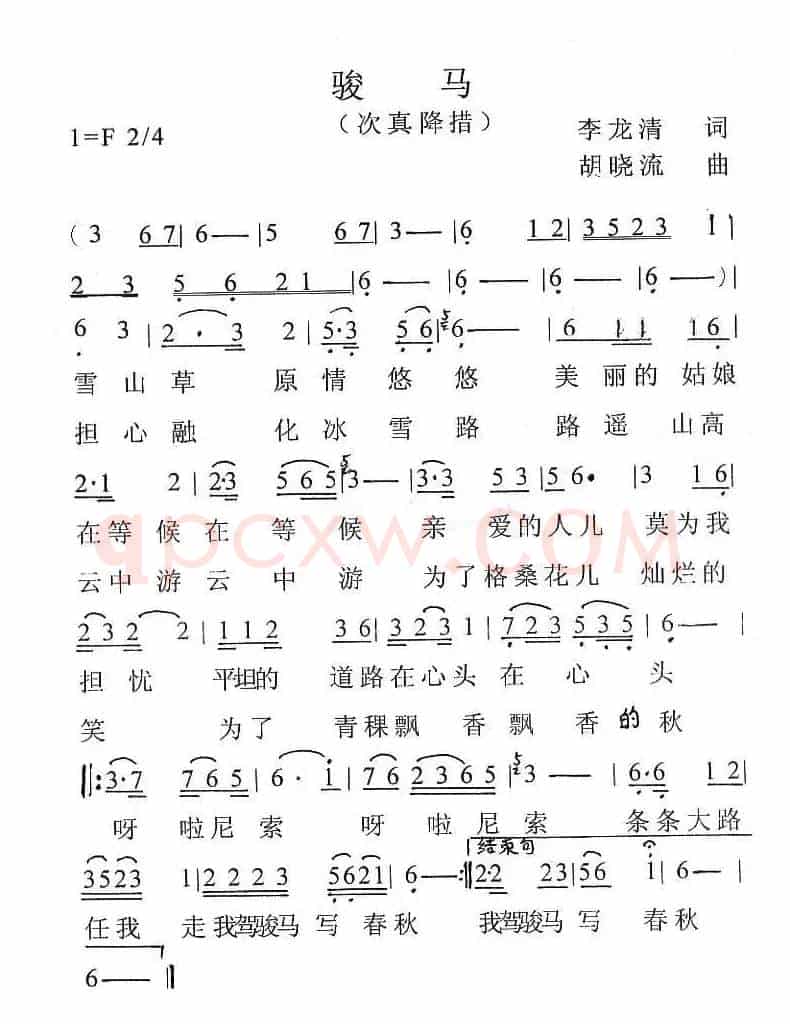 骏 马
（次真降措）
1=F 2/4
李龙清 词
胡晓流 曲
( 3 6 7| 6— |5 6 7| 3— |6 1 2| 3 5 2 3 1 |
2 3 5 6 2 1 |6— |6— |6— )|
6 3 |2 · 3 2 |5·3 5 6|5 6— |6 1 1 1 6|
雪 山 草 原 情 悠 悠 美 丽 的 姑 娘
担 心 融 化 冰 雪 路 路 遥 山 高
2·1 2 |2·3 5 6 5|5 3— |3·3 5 3|5 6· |3 1 6|
在 等 候 在 等 候 亲 爱 的 人 儿 莫 为 我
云 中 游 云 中 游 为 了 格 桑 花 儿 灿 烂 的
qpcxw.com
2 3 2 2 |1 1 2 3 6|3 2 3 1|7 2 3 5 3 5|6— |
担 忧 平坦的 道 路 在 心 头 在 心 头
笑 为 了 青 稞 飘 香 飘 香 的 秋
‖:3·7 7 6 5 |6 · i|7 6 2 3 6 5 |5 3— |6·6 1 2|
呀 啦 尼 索 呀 啦 尼 索 条 条 大 路
结束句
3 5 2 3 1| 2 2 2 3 5 6 2 1| 6— :‖2·2 2 3|5 6 i|6— |
任 我 走 我驾骏马 写 春 秋 我驾骏马 写 春 秋
6— ‖